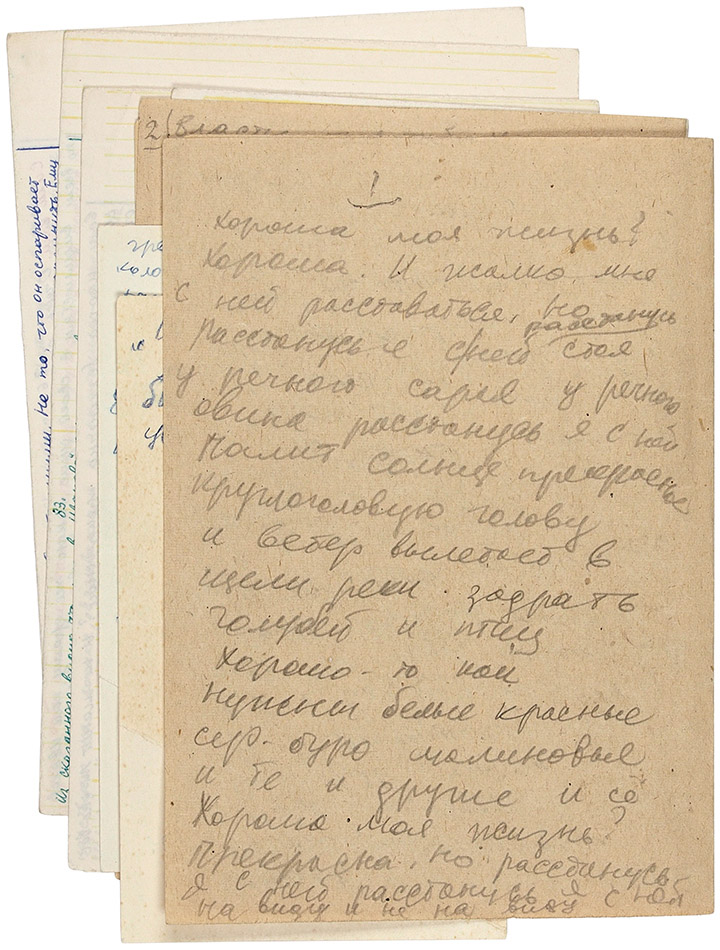 1
Хороша моя жизнь?
Хороша. И жалко мне
с ней расставаться, но
расстанусь
Расстанусь я с ней стоя
у речного сарая у речного
овина расстанусь я с ней
Палит солнце прекрасное
круглоголовую голову
и ветер вылетает в
щели реки задрать
голубей и птиц
Хорошо-то как
нужны белые красные
сер-буро малиновые
и те и другие и се
Хороша моя жизнь?
Прекрасна, но расстанусь
я с ней расстанусь я с ней
на виду и не на виду с ней
2 Власти
гре
коло
но то, что он оспаривает
Ему
83.
Из сказанного видно